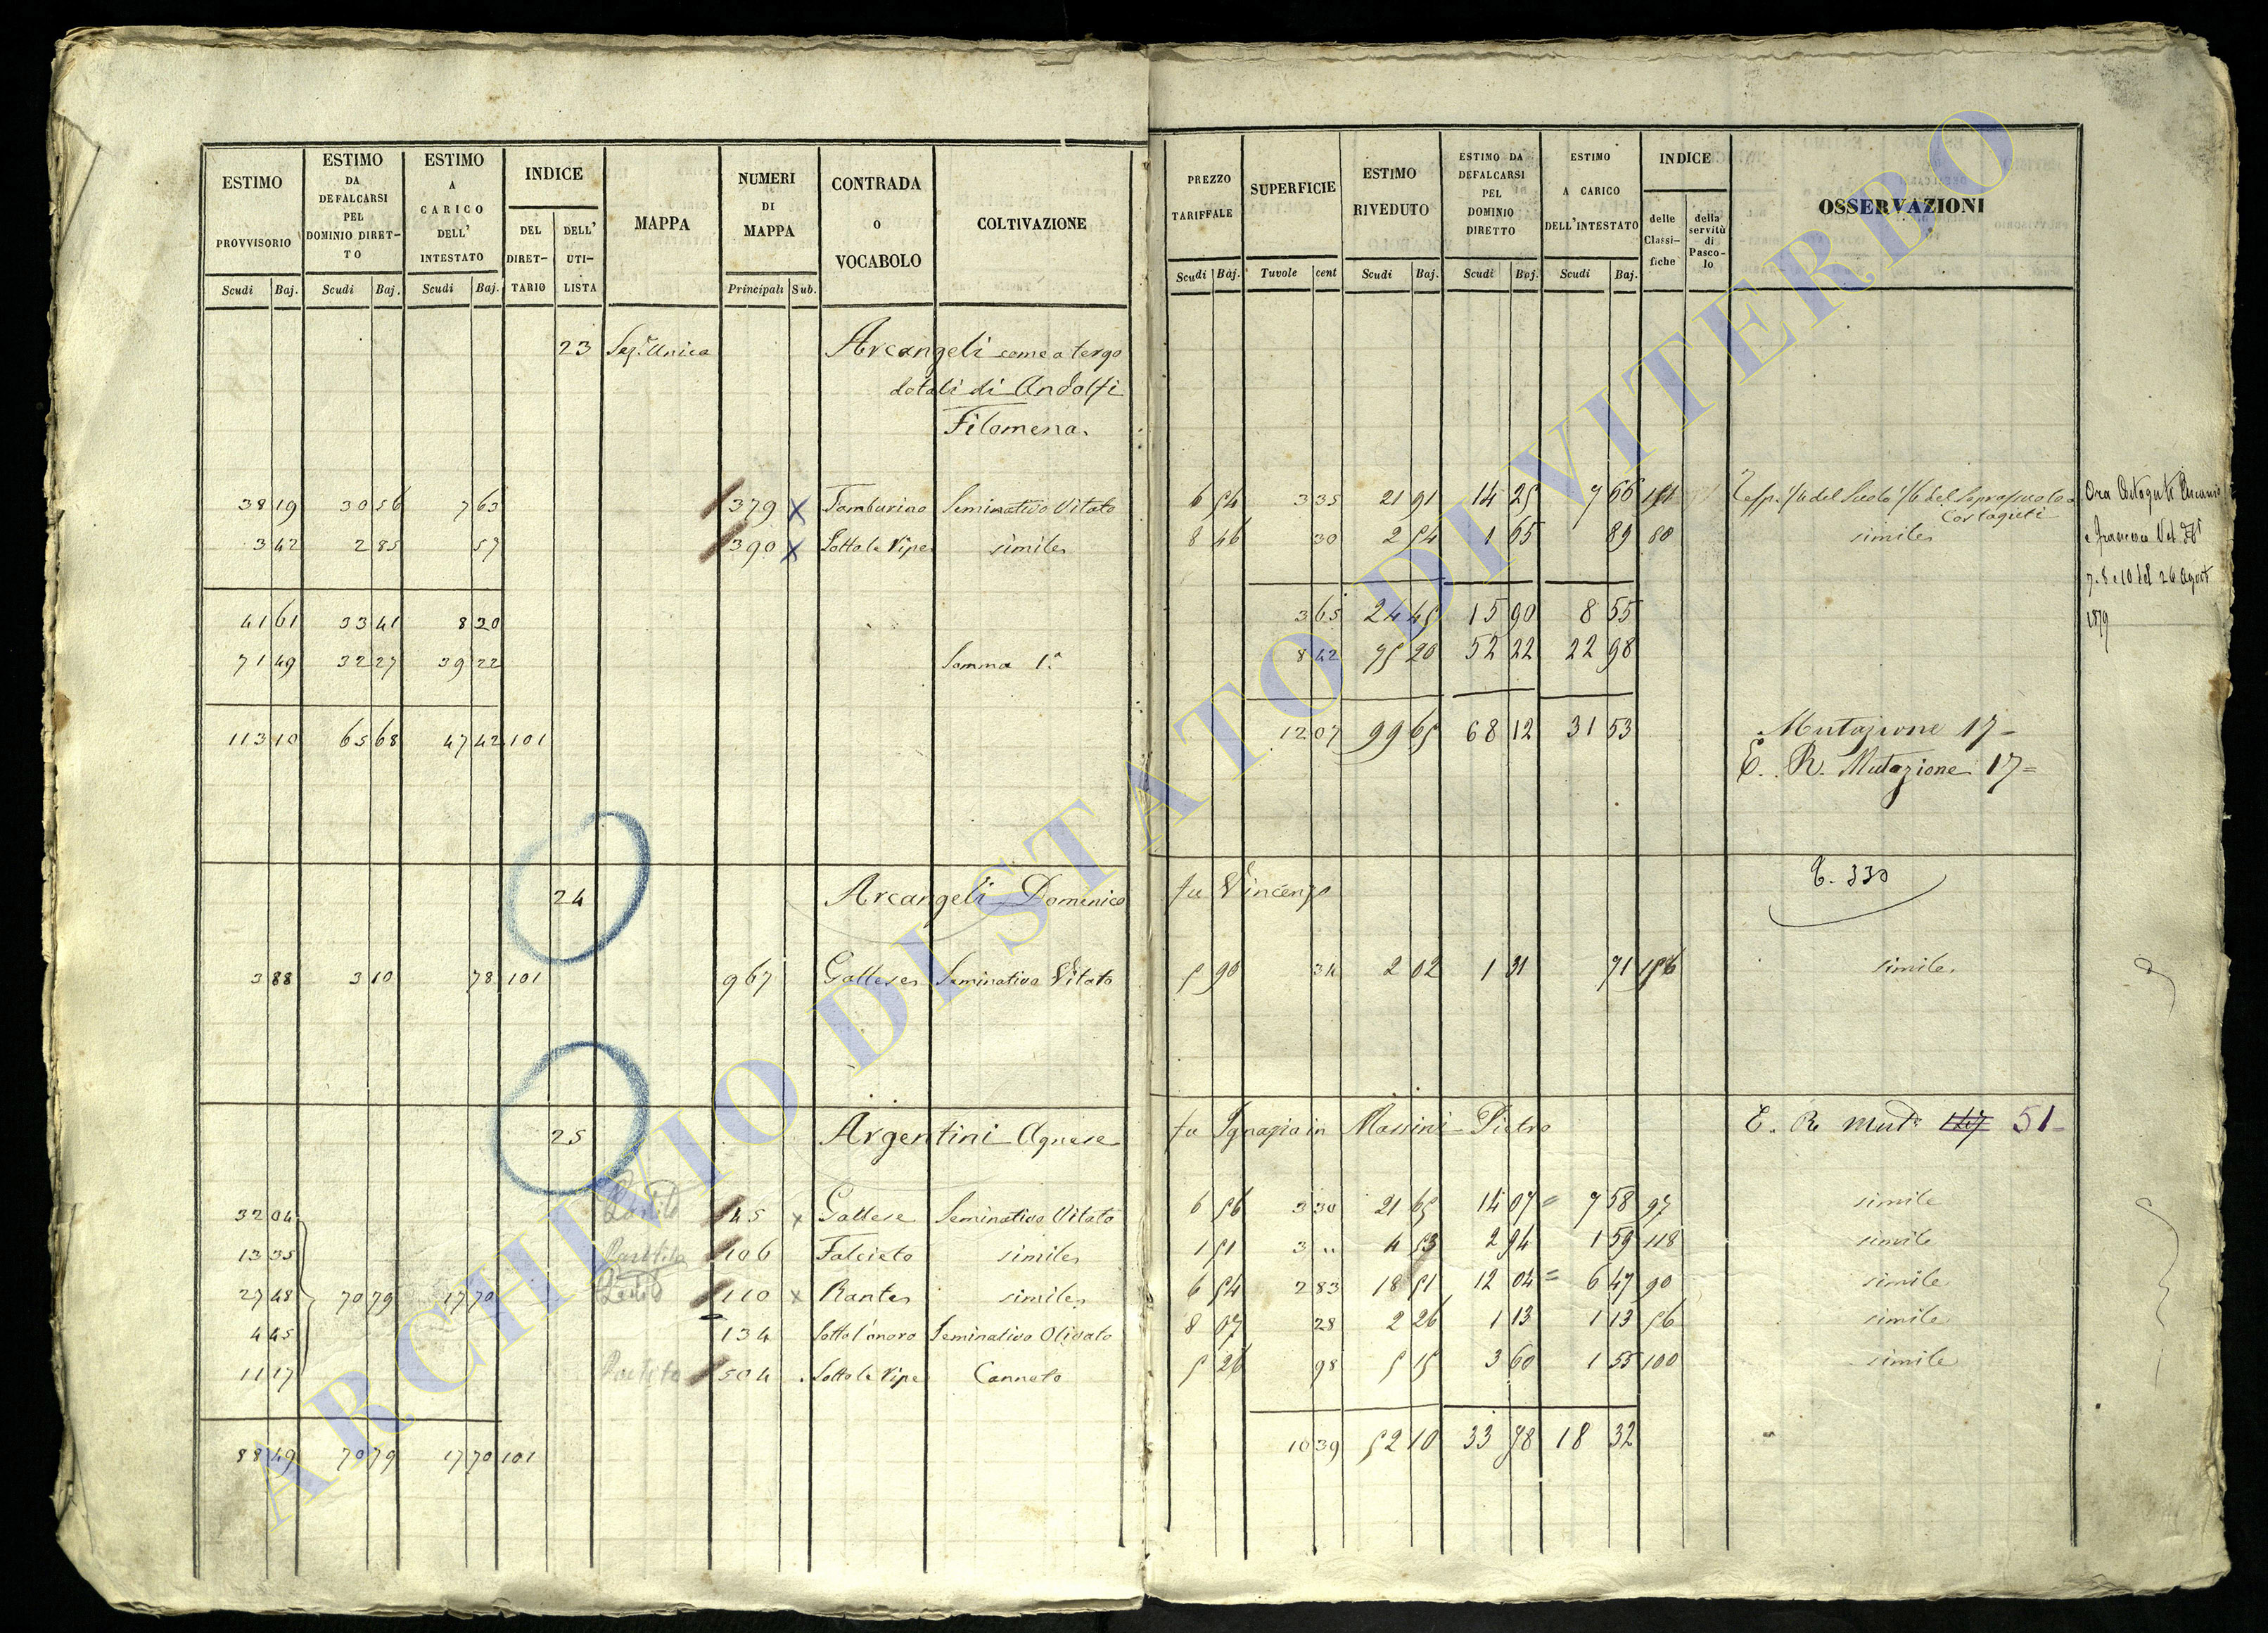 ESTIMO PROVVISORIO Scudi Baj.
ESTIMO DA DEFALCARSI PEL DOMINIO DIRET-TO Scudi Baj.
ESTIMO A CARICO DELL' INTESTATO Scudi Baj.
INDICE DEL DIRET-TARIO DELL' UTI-LISTA
MAPPA
NUMERI DI MAPPA Principali Sub.
CONTRADA O VOCABOLO
COLTIVAZIONE
PREZZO TARIFFALE Scudi Baj.
SUPERFICIE Tavole cent
ESTIMO RIVEDUTO Scudi Baj.
ESTIMO DA DEFALCARSI PEL DOMINIO DIRETTO Scudi Baj.
ESTIMO A CARICO DELL'INTESTATO Scudi Baj.
INDICE delle Classi-fiche della servitù di Pasco-lo
OSSERVAZIONI
23 Sez.e Unica Arcangeli come a tergo
dotali di Andolfi
Filomena.
38 19 30 56 7 63 379 x Tamburino Seminativo Vitato 6 54 3 35 21 91 14 25 7 66 del Suolo del Soprasuolo a
Costaguti
3 42 2 85 57 390 x Sotto le Ripe simile 8 46 30 2 54 1 65 89 80 simile
Ora Costaguti Ascanio
e Francesco
7. 8 e 10 del 26 Agosto
1879
41 61 33 41 8 20 3 65 24 45 15 90 8 55
71 49 32 27 39 22 Somma 1.a 8 42 75 20 52 22 22 98
113 10 65 68 47 42 101 12 07 99 65 68 12 31 53 Mutazione 17
E. R. Mutazione 17
24 Arcangeli Domenico fu Vincenzo E. 330
3 88 3 10 78 101 967 Gallese Seminativo Vitato 5 90 34 2 02 1 31 71 simile
25 Argentini Agnese fu Ignazio in Massini Pietro E. R. Mut.e 51
32 04 Partito 45 x Gallese Seminativo Vitato 6 56 3 30 21 65 14 07 7 58 97 simile
13 35 Partito 106 Falcieto simile 1 51 3 " 4 53 2 94 1 59 118 simile
27 48 70 79 17 70 Partito 110 x Rante simile 6 54 2 83 18 51 12 04 6 47 90 simile
4 45 134 Seminativo Olivato 8 07 28 2 26 1 13 1 13 56 simile
11 17 Partito 504 Sotto le Ripe Canneto 5 26 98 5 15 3 60 1 55 100 simile
88 49 70 79 17 70 101 10 39 52 10 33 78 18 32
ARCHIVIO DI STATO DI VITERBO